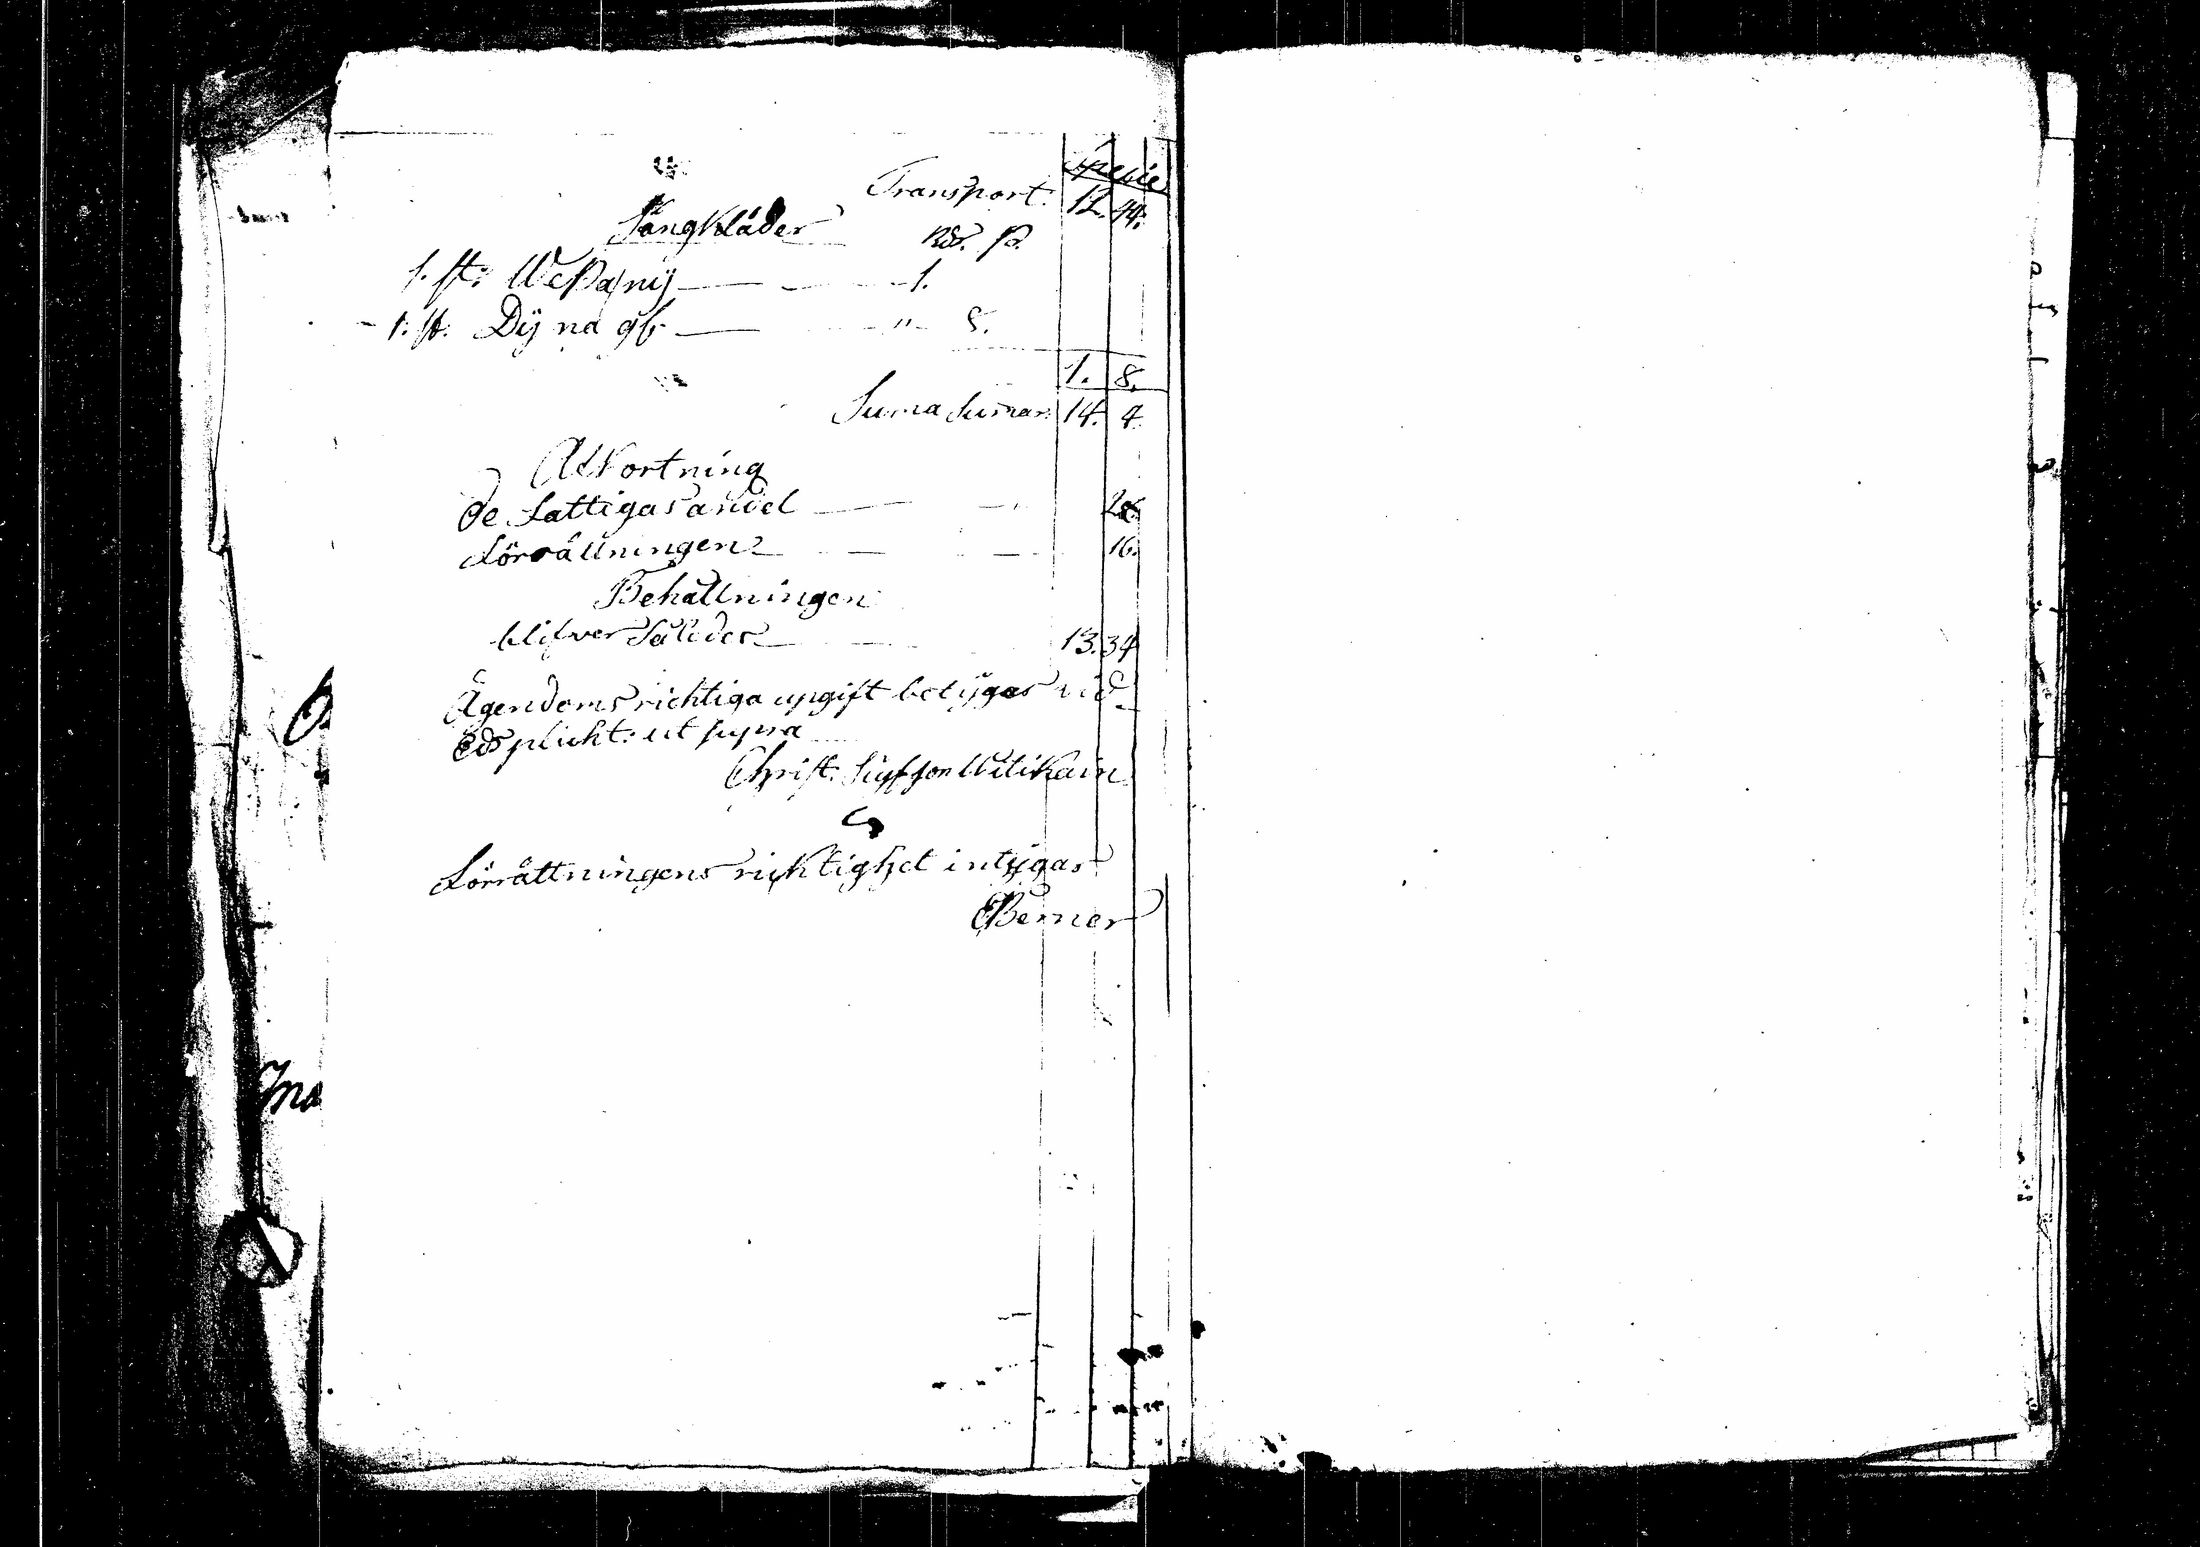 Specie
Transport. 12. 44.
Sängkläder Rdr. sk.
1. st: Wepa ny — — 1.
1. st. Dyna gb. — — " 8.
1. 8.
Suma sumar: 14. 4.
Afkortning
De Fattigas andel — — 2
Förrättningen — — 16.
Behållningen
blifver Således — 13. 34
Ägendoms richtiga upgift betygas vid
Eds plickt: ut supra
Christ: Sigfson Wilikain
Förrättningens richtighet intygas
Berner